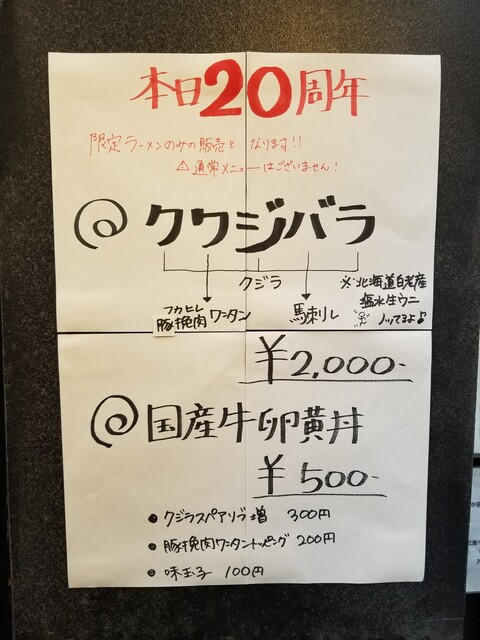 本日20周年
限定ラーメンのみの販売となります!!
⚠通常メニューはございません!
クワジバラ
クジラ
フカヒレ
豚挽肉ワンタン
馬刺し
※北海道白老産
塩水生ウニ
ノッてるよ♪
¥2,000-
国産牛卵黄丼
¥500-
・クジラスペアリブ増 300円
・豚挽肉ワンタントッピング 200円
・味玉子 100円